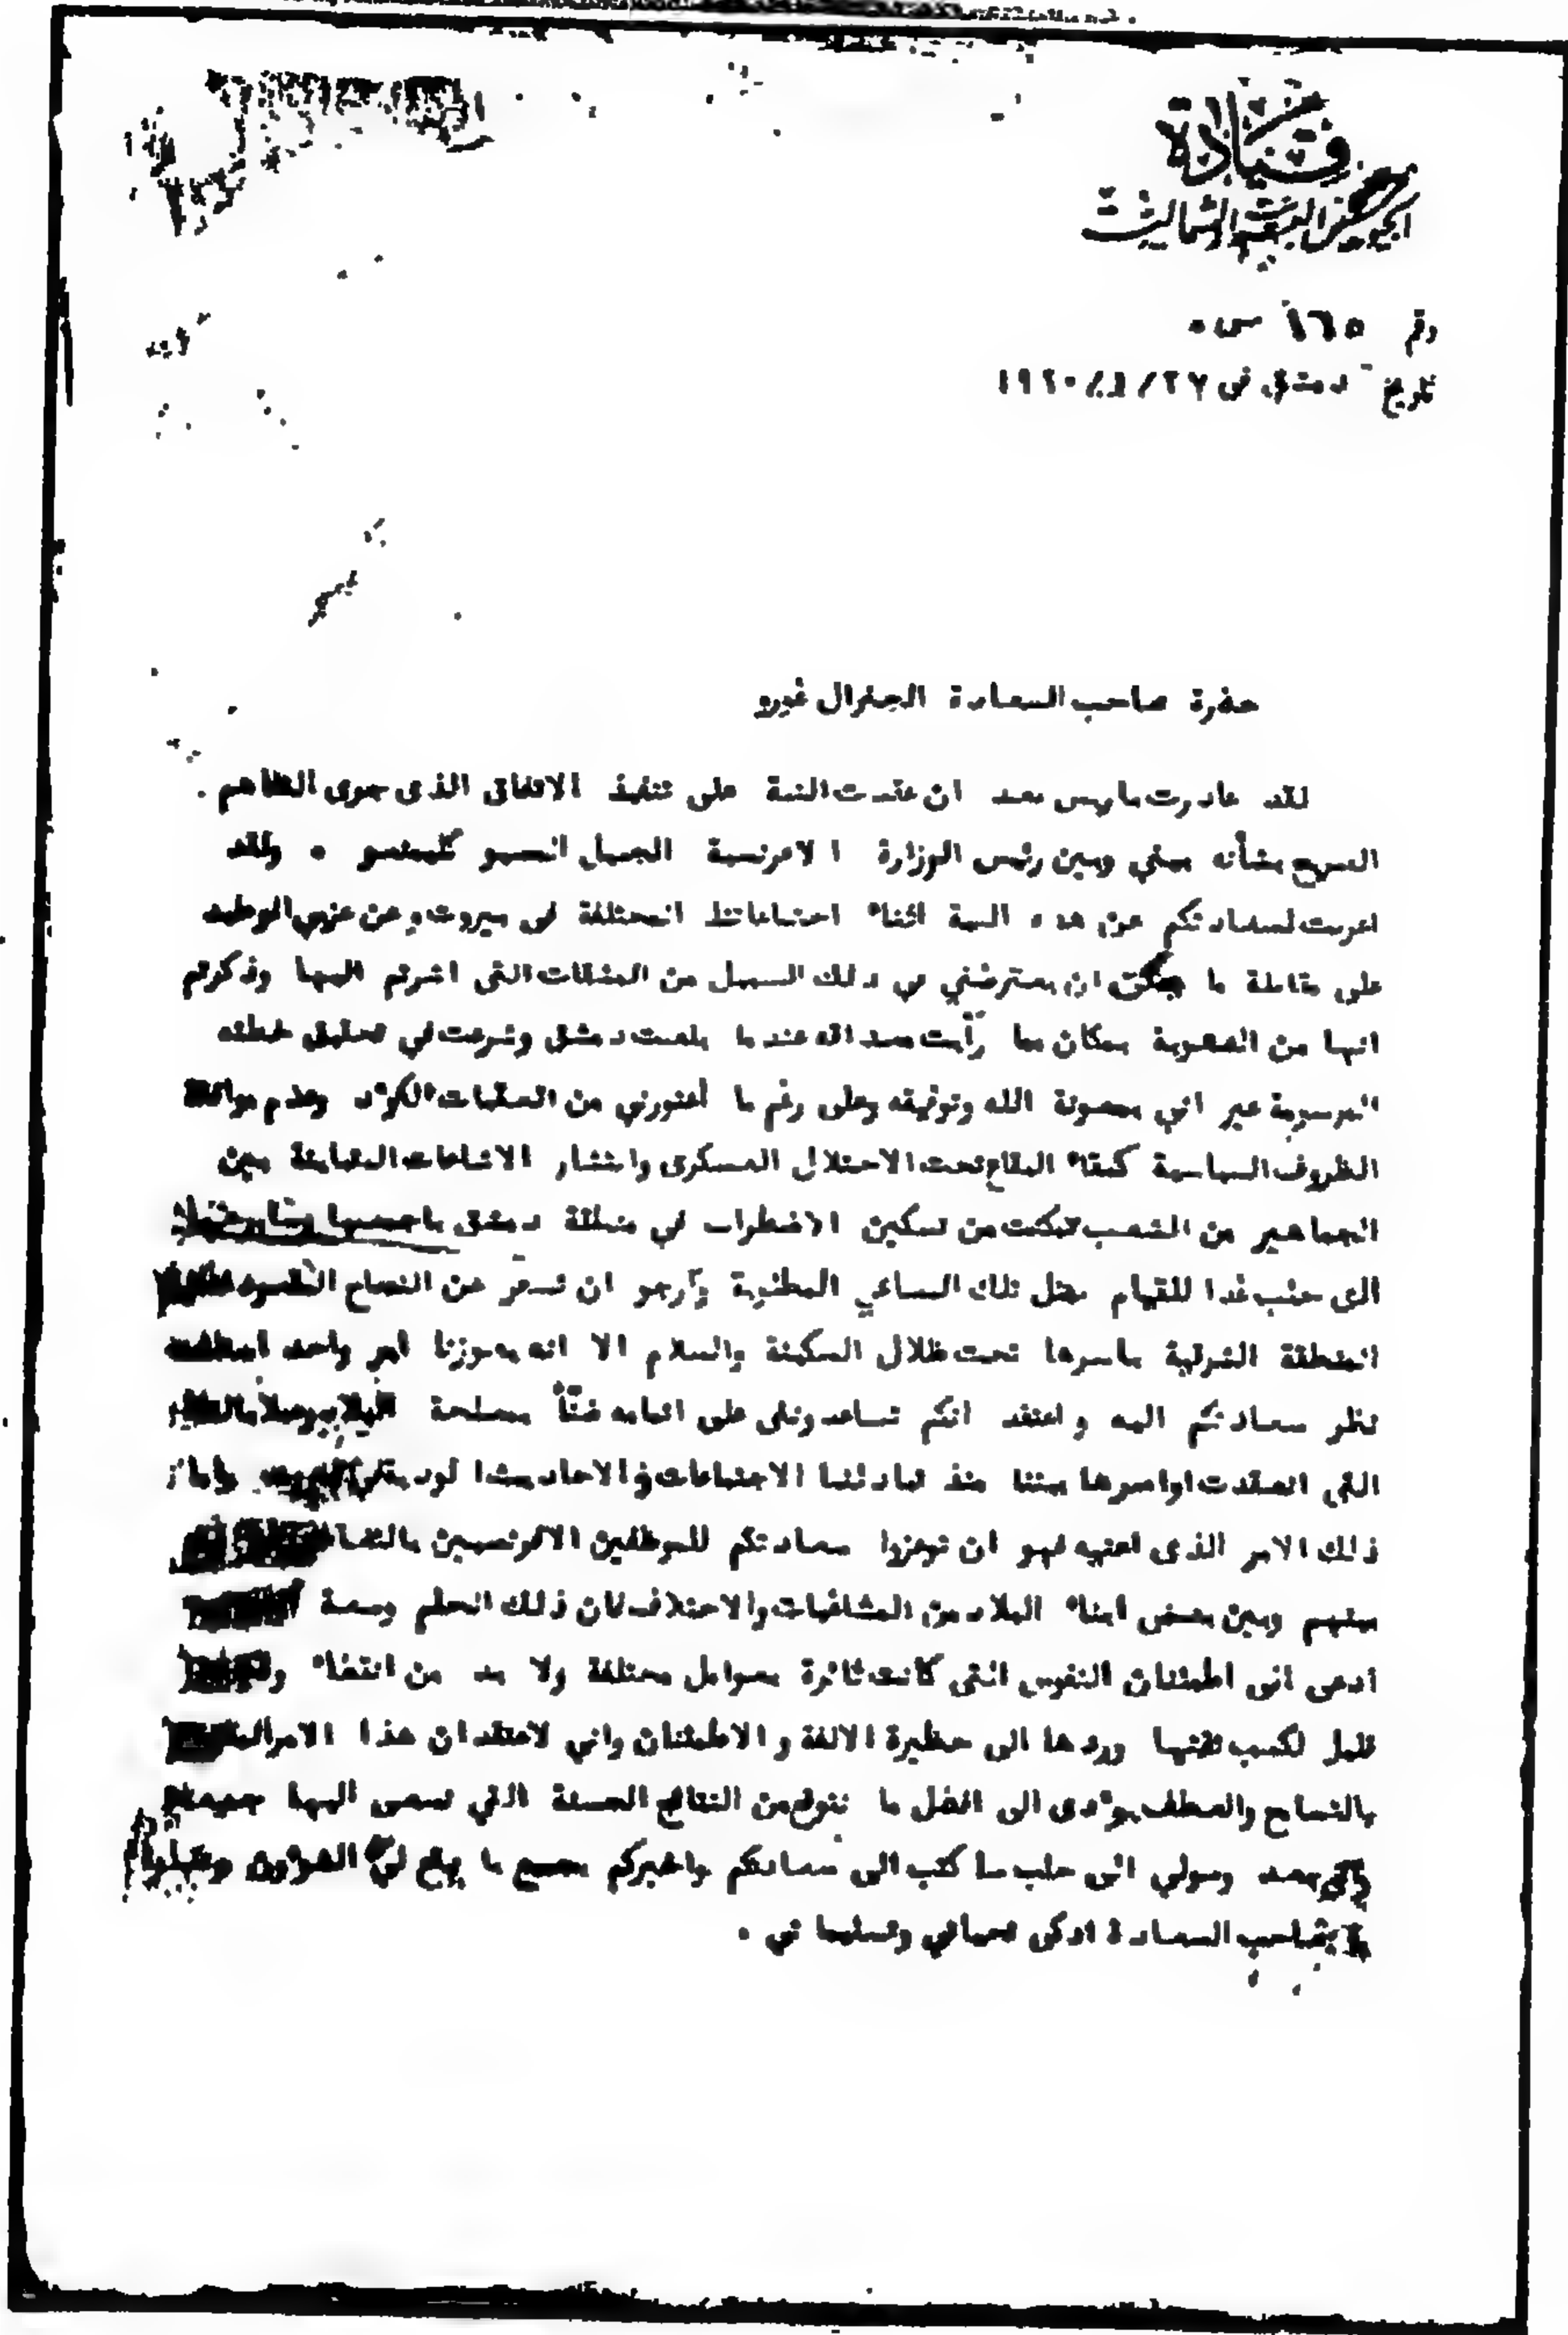 قيادة
الجيوش العربية الشمالية
رقم ١٦٥ س ٠
تاريخ دمشق في ٢٧ / ١ / ١٩٢٠
حضرة صاحب السعادة الجنرال غورو
لقد غادرت باريس بعد ان عقدت النية على تنفيذ الاتفاق الذى جرى التفاهم
الصريح بشأنه بيني وبين رئيس الوزارة الافرنسية الجليل المسيو كليمنصو ٠ ولقد
اعربت لسعادتكم عن هذه النية اثناء اجتماعاتنا المختلفة في بيروت وعن عزمي الوطيد
على مقابلة ما يمكن ان يعترضني في ذلك السبيل من المشكلات التى اشرتم اليها وذكرتم
انها من الصعوبة بمكان مما رأيت مصداقه عندما بلغت دمشق وشرعت في تحقيق خطته
المرسومة غير اني بمعونة الله وتوفيقه وعلى رغم ما أعتورني من العقبات الكوءد وعدم موافقة
الظروف السياسية كبقاء البقاع تحت الاحتلال العسكرى وانتشار الاشاعات المتباينة بين
الجماهير من الشعب تمكنت من تسكين الاضطراب في منطقة دمشق باجمعها
الى حلب غدا للقيام بمثل تلك المساعي المطلوبة وأرجو ان تسفر عن النجاح المقصود
المنطقة الشرقية باسرها تحت ظلال السكينة والسلام الا انه يعوزنا امر واحد
نظر سعادتكم اليه واعتقد انكم تساعدونني على اتمامه ضنّاً بمصلحة البلاد
التي انعقدت اواصرها بيننا منذ تبادلنا الاجتماعات والاحاديث
ذلك الامر الذى اعنيه فهو ان توعزوا سعادتكم للموظفين الافرنسيين
بينهم وبين بعض ابناء البلاد من المشاغبات والاختلاف فان ذلك الحلم وسعة
ادعى الى اطمئنان النفوس التى كانت ثائرة بعوامل مختلفة ولا بد من انقضاء
قليل لكسب ثقتها وردها الى حظيرة الالفة والاطمئنان واني لاعتقد ان هذا الامر
بالتسامح والعطف يوءدى الى افضل ما نتوقع من النتائج الحسنة التي نسعى اليها جميعا
وصولي الى حلب ساكتب الى سعادتكم واخبركم بجميع ما يقع لي
صاحب السعادة ازكى تحياتي وتسليماتي ٠